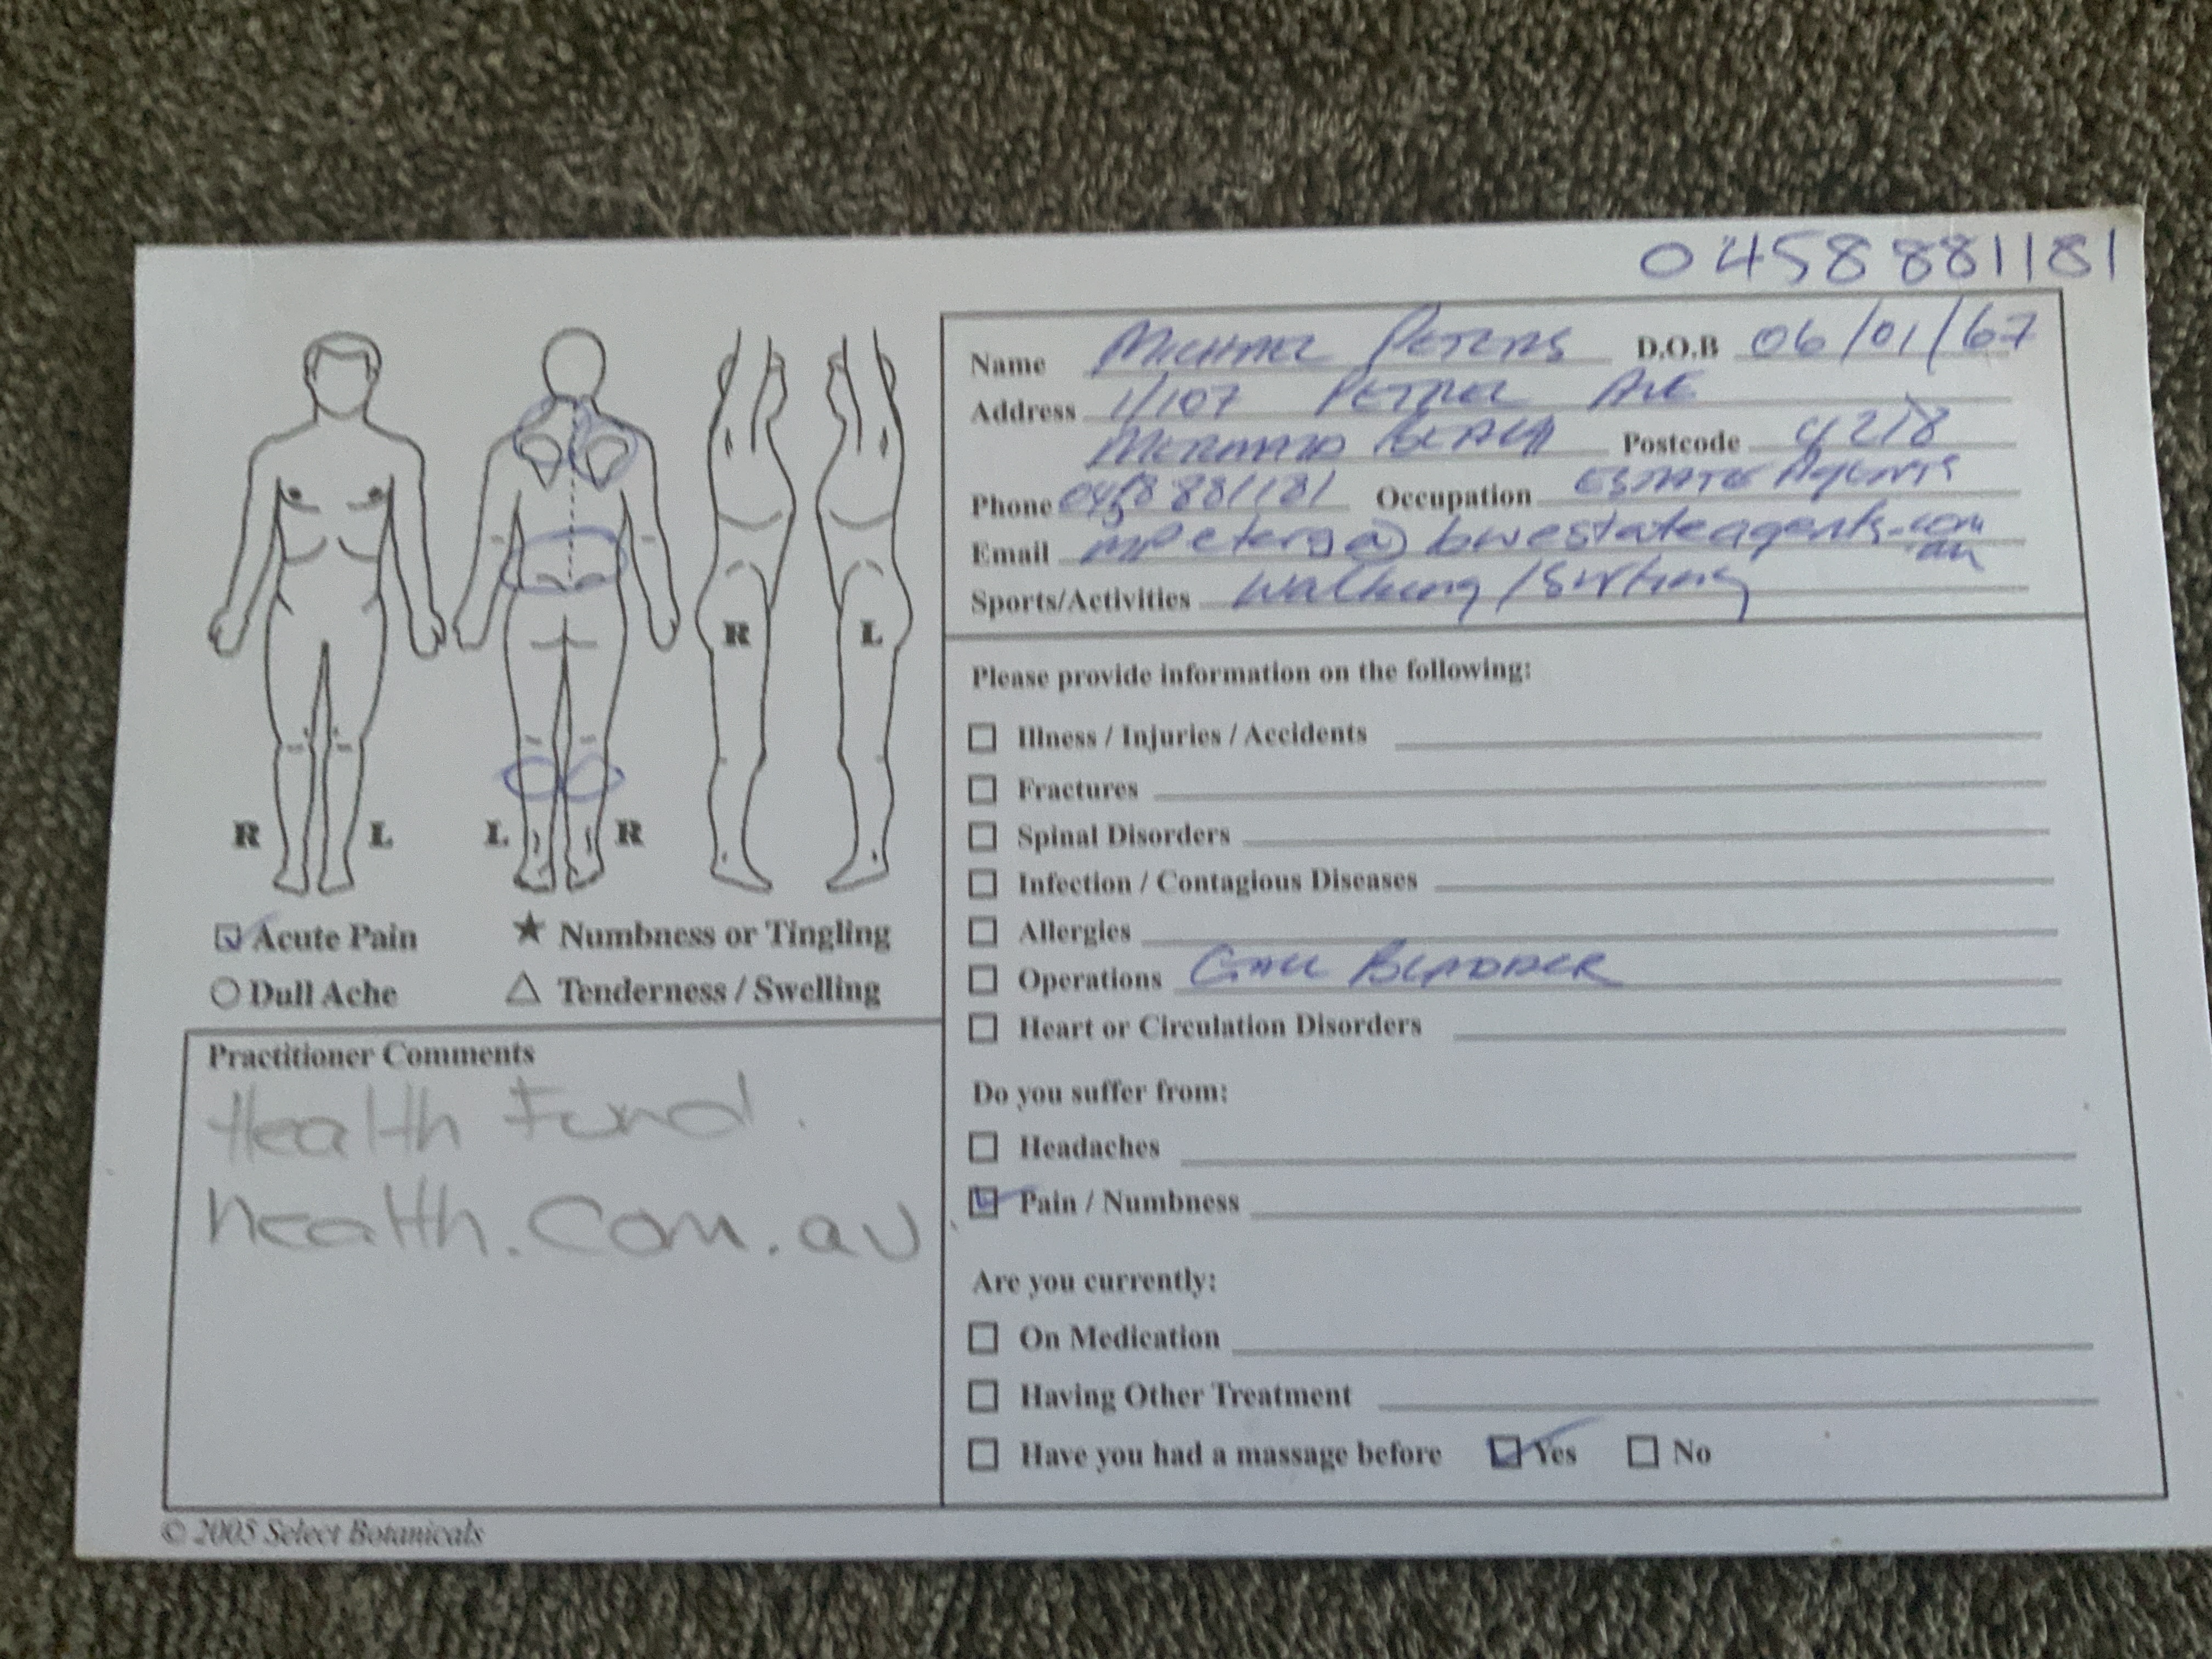 0458 881181
Name Michael Peters D.O.B 06/01/67
Address 1/107 Petrel Ave
Mermaid Beach Postcode 4218
Phone 0458 881181 Occupation Estate Agents
Email mpeters@bwestateagents.com
.au
Sports/Activities Walking / Surfing
R L
R L L R
Acute Pain ★ Numbness or Tingling
Dull Ache △ Tenderness / Swelling
Practitioner Comments
Health Fund.
health.com.au
Please provide information on the following:
Illness / Injuries / Accidents
Fractures
Spinal Disorders
Infection / Contagious Diseases
Allergies
Operations Gall Bladder
Heart or Circulation Disorders
Do you suffer from:
Headaches
Pain / Numbness
Are you currently:
On Medication
Having Other Treatment
Have you had a massage before Yes No
© 2005 Select Botanicals